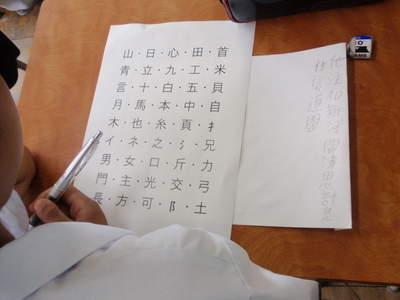 山・日・心・田・首
青・立・九・工・米
言・十・白・五・貝
月・馬・本・中・自
木・也・糸・頁・扌
イ・ネ・之・氵・兄
男・女・口・斤・力
門・主・光・交・弓
長・方・可・阝・土
他 注 加 新 河 間 清